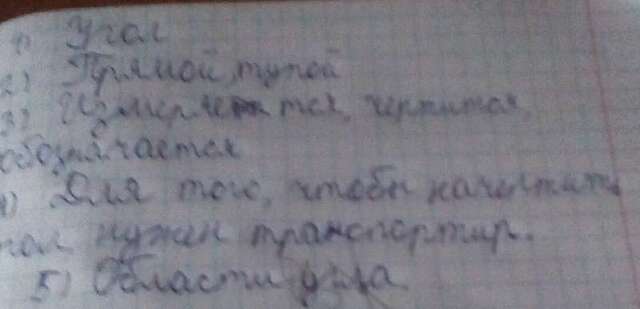 1) Угол
2) Прямой, тупой
3) Измеряется, чертится,
обозначается
4) Для того, чтобы начертить
угол нужен транспортир.
5) Области угла